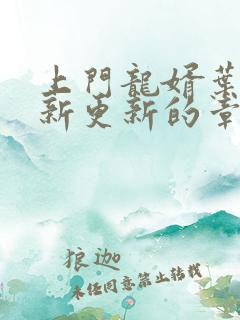 上門龍婿葉
新更新的章
狼迦
未经同意禁止转载